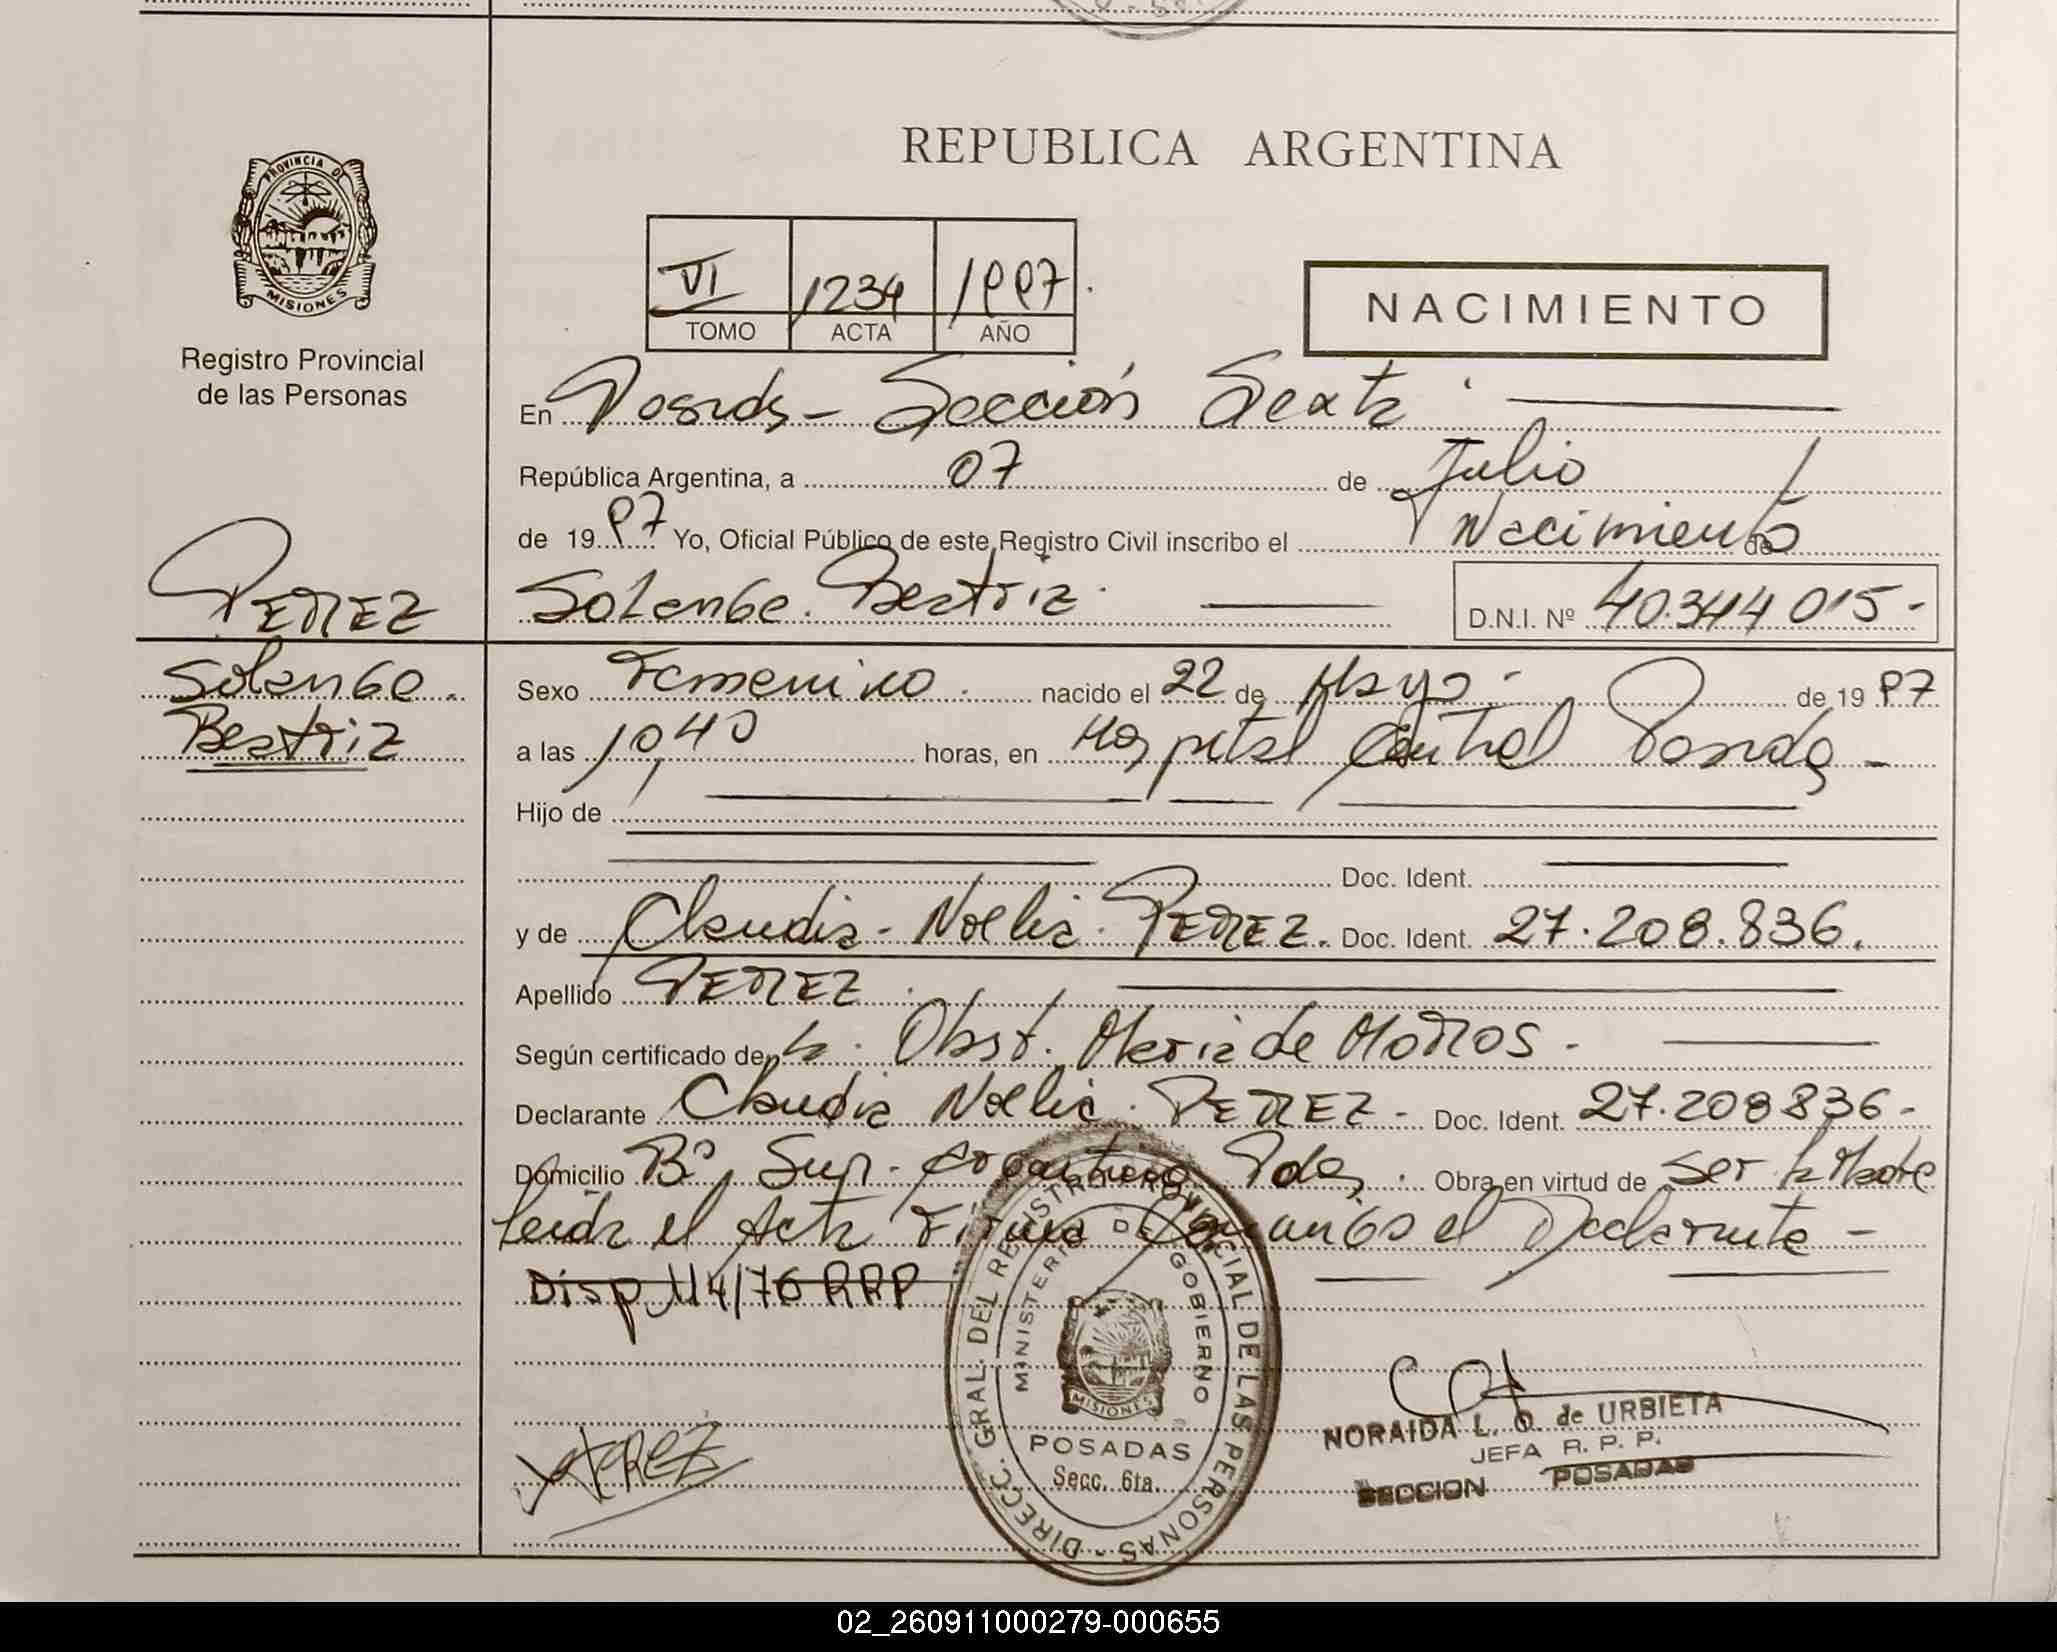 REPUBLICA ARGENTINA
PROVINCIA DE
MISIONES
Registro Provincial
de las Personas
VI 1234 1997
TOMO ACTA AÑO
NACIMIENTO
En Posadas - Sección Sexta
República Argentina, a 07 de Julio
de 19 97 Yo, Oficial Público de este Registro Civil inscribo el Nacimiento de
PEREZ
Solange Beatriz
D.N.I. Nº 40.344 015-
Solange
Beatriz
Sexo Femenino nacido el 22 de Mayo de 19 97
a las 10,40 horas, en Hospital Central Posadas -
Hijo de
Doc. Ident.
y de Claudia Noelia PEREZ. Doc. Ident. 27.208.836.
Apellido PEREZ
Según certificado de la Obst. Maria de
Declarante Claudia Noelia PEREZ - Doc. Ident. 27.208836-
Domicilio Bº Sur Pdas. Obra en virtud de ser la Madre
leida el Acta Firma Conmigo el Declarante -
Disp 114/76 RPP
DIRECC. GRAL. DEL REGISTRO PROVINCIAL DE LAS PERSONAS -
MINISTERIO DE GOBIERNO
MISIONES
POSADAS
Secc. 6ta.
PEREZ
NORAIDA L. O. de URBIETA
JEFA R. P. P.
SECCION POSADAS
02_260911000279-000655